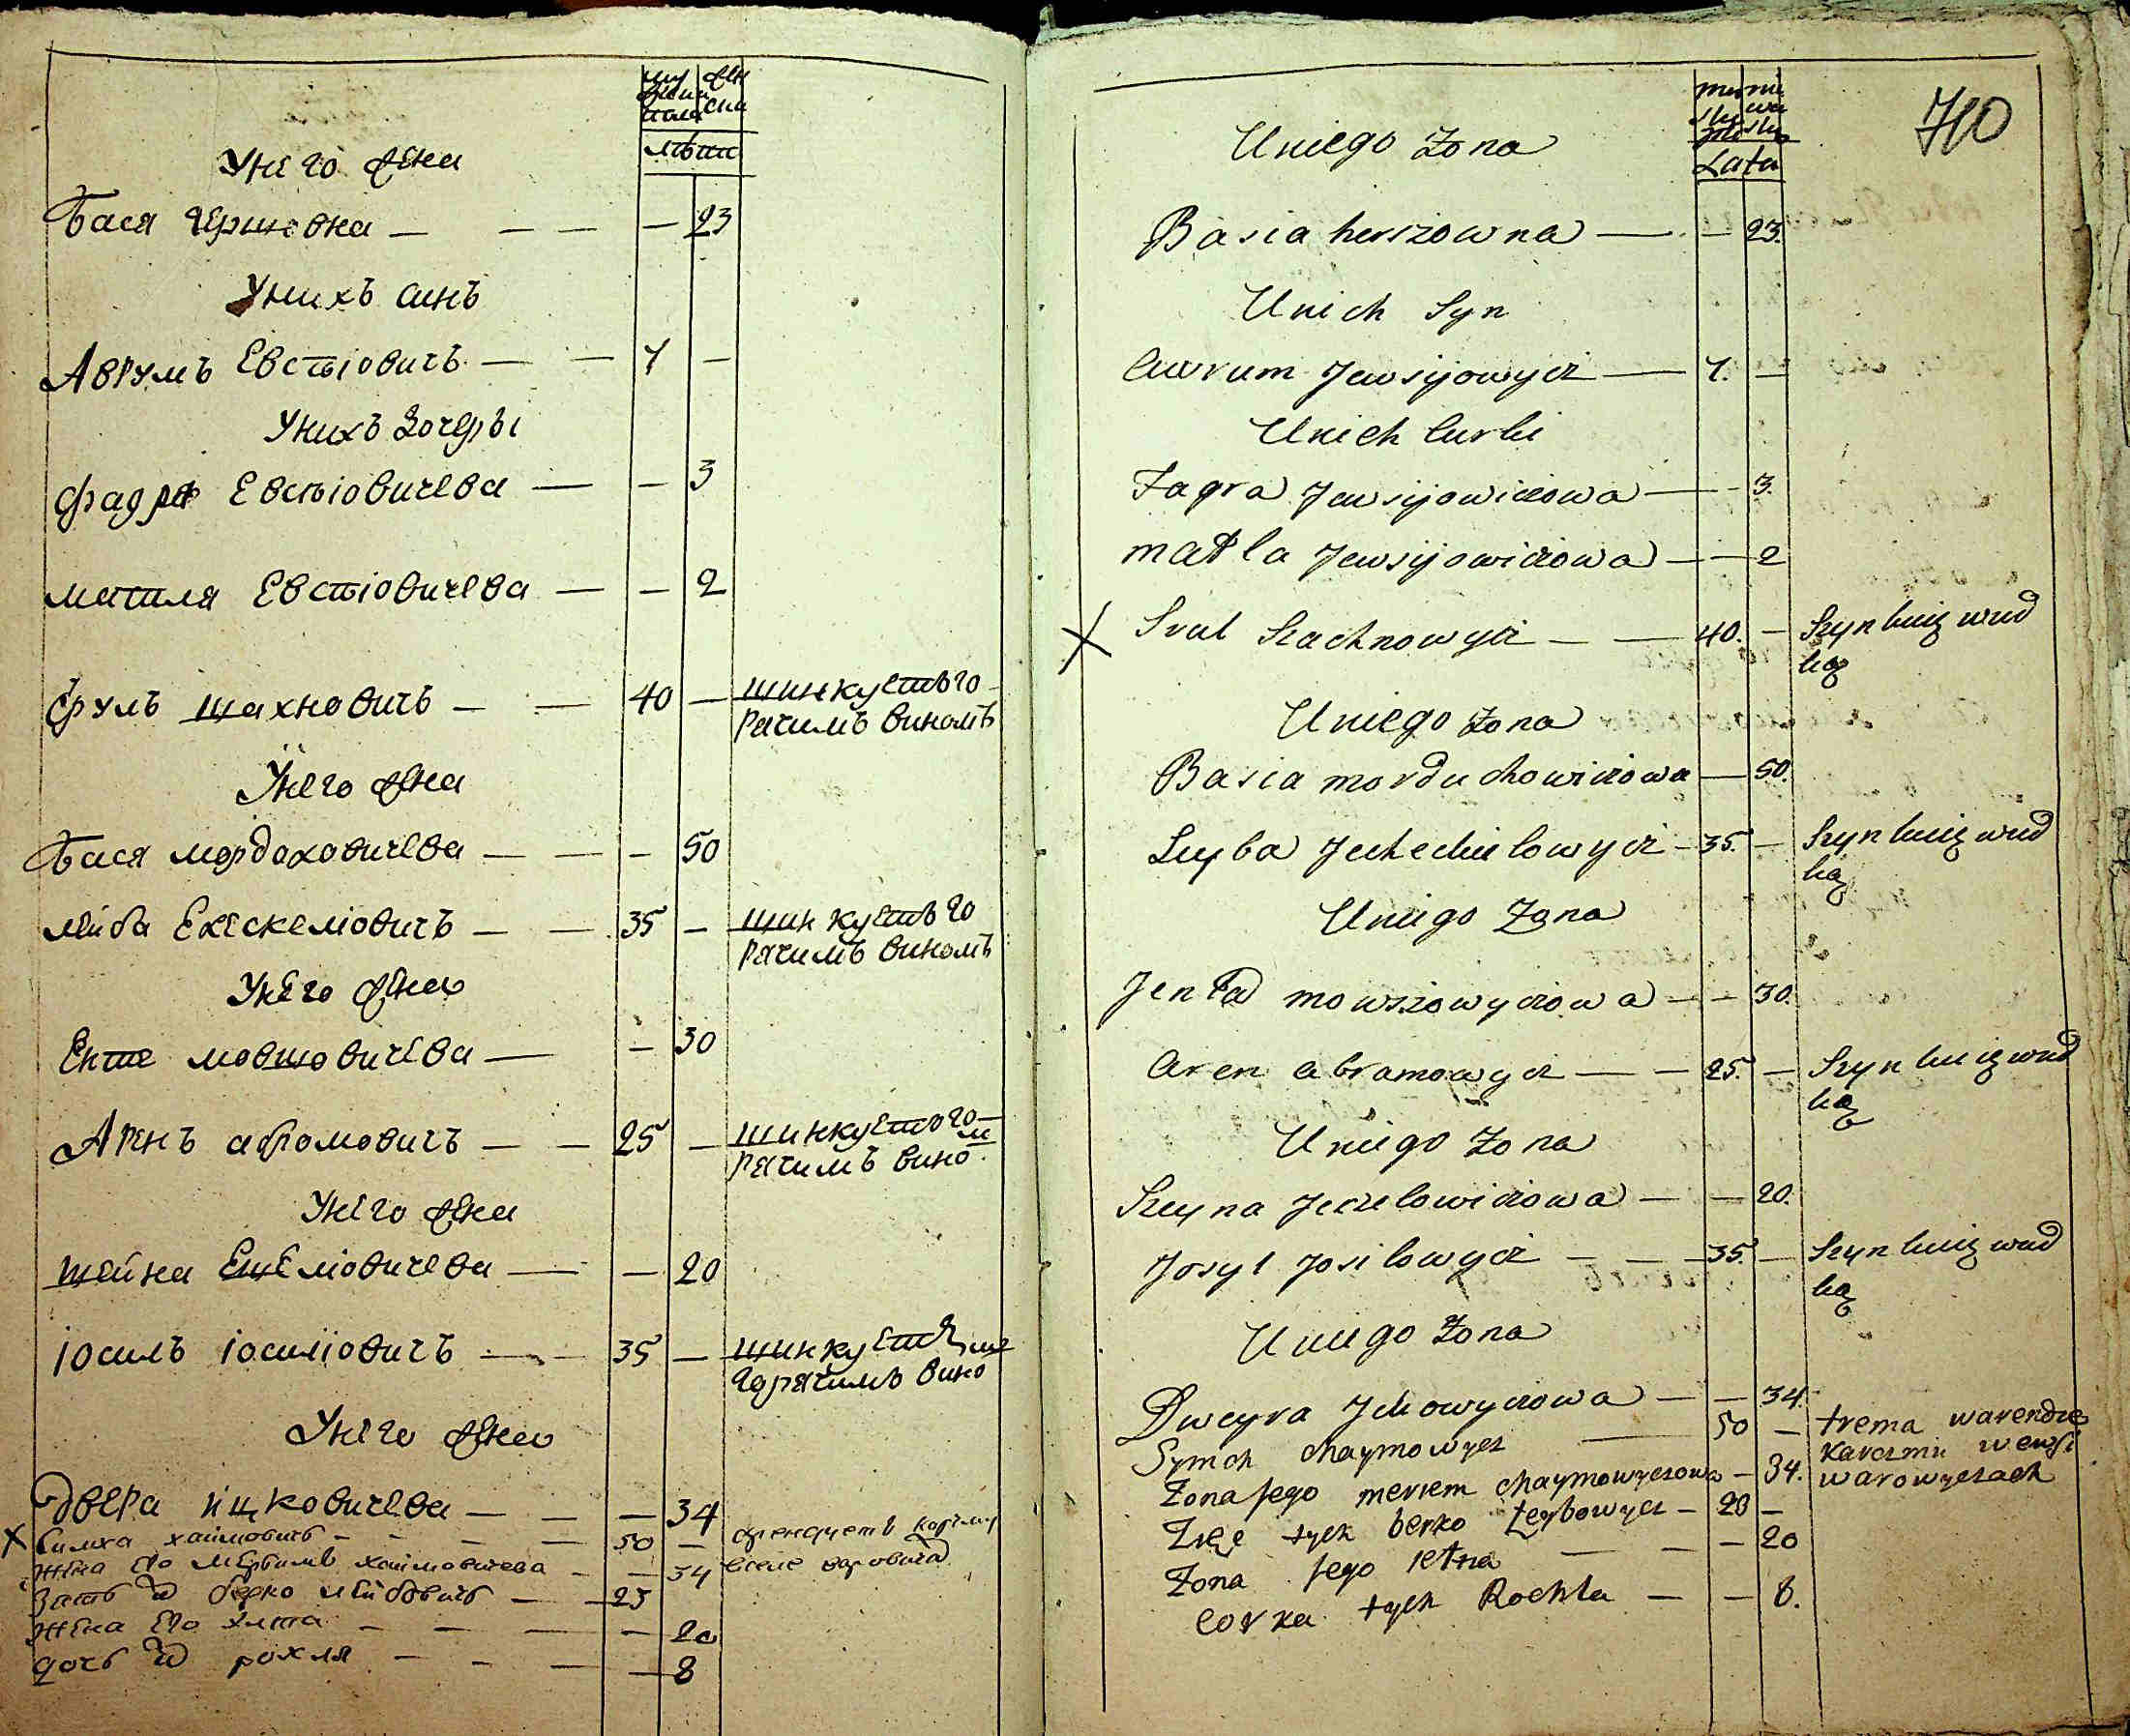 му жеска пола
жен ска
лѣта
Унего жена
Бася Гершовна — — — — 23
Унихъ синъ
Аврумъ Евсѣіовичъ — — 1 —
Унихъ дочеры
Фадра Евсѣіовичева — — 3
матля Евсѣіовичева — — 2
Сруль Шахновичъ — — 40 — шинкуетъ го
рачимъ виномъ
Унего жена
Бася мордоховичева — — — 50
лейба Ехескеліовичъ — — 35 — шинкуетъ го
рачимъ виномъ
Унего жена
Енте мовшовичева — — 30
Аренъ абрамовичъ — — 25 — шинкуетъ го
рячимъ вином
Унего жена
шейна Ецеліовичева — — 20
Іосиль Іосиліовичъ — — 35 — шинкуетъ
горячимъ вино
Унего жена
двера ицковичева — — — 34
Симха хаимовичъ — — — 50 — орендуетъ корчму
жена его меримъ хаимовичева — — 34 вселе варовичах
зять их берко лейбовичъ — 23
жена его — — — — 20
дочь их рохля — — — — 8
710
Lata
Uniego Żona
Basia herszowna — — 23.
Unich Syn
Awrum Jewsijowycz — 1. —
Unich Curki
Fagra Jewsijowiczowa — — 3.
matla Jewsijowiczowa — — 2
Srul Szachnowycz — — 40. — Szynkuię wud
ką
Uniego Żona
Basia morduchowiczowa — 50.
Leyba Jechechielowycz — 35. — Szynkuię wud
ką
Uniego Żona
Jenta mowszowyczowa — — 30.
Aren abramowycz — — 25. — Szynkuię wud
ką
Uniego Żona
Szeyna Jecelowiczowa — — 20.
Josyl Josilowycz — — 35. — Szynkuię wud
ką
Uniego Żona
Dweyra Ickowyczowa — — 34.
Symch chaymowycz — 50 — trema warendzie
Żona jego meriem chaymowyczowa — 34. karczmu wewsi
warowyczach
Zięć tych berko Leybowycz — 23 —
Żona jego — — — 20
corka tych Rochla — — 8.